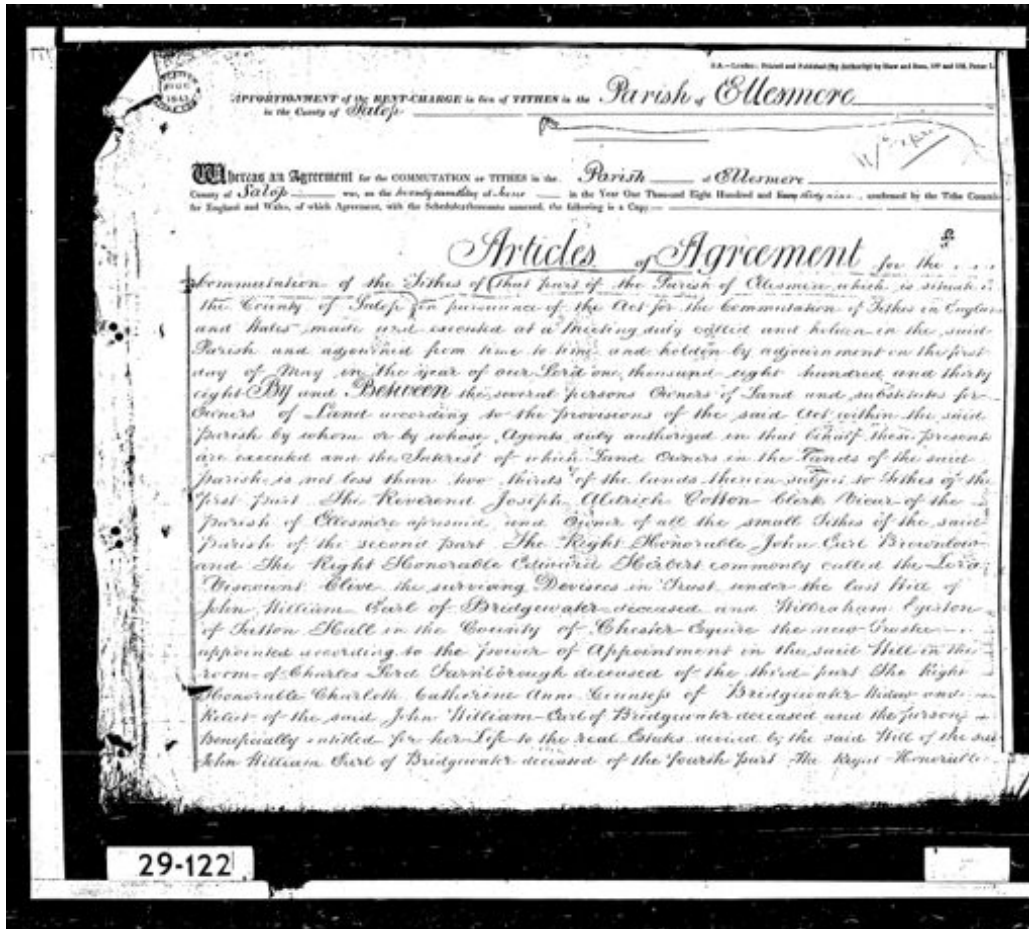 APPORTIONMENT of the RENT-CHARGE in lieu of TITHES in the Parish of Ellesmere
in the County of Salop
Whereas an Agreement for the COMMUTATION of TITHES in the Parish of Ellesmere
County of Salop was, on the twenty ninth day of June in the Year One Thousand Eight Hundred and thirty nine, confirmed by the Tithe
for England and Wales, of which Agreement, with the Schedule thereunto annexed, the following is a Copy
Articles of Agreement for the
Commutation of the Tithes of (that part of the Parish of Ellesmere which is situate
the County of Salop) in pursuance of the Act for the Commutation of Tithes in England
and Wales made and executed at a Meeting duly called and holden in the said
Parish and adjourned from time to time and holden by adjournment on the first
day of May in the year of our Lord one thousand eight hundred and thirty
eight By and Between the several persons Owners of Land and substitutes for
Owners of Land according to the provisions of the said Act within the said
parish by whom or by whose Agents duly authorized in that behalf these presents
are executed and the Interest of which Land Owners in the Lands of the said
parish is not less than two thirds of the lands therein subject to Tithes of the
first part The Reverend Joseph Aldrich Cotton Clerk Vicar of the
parish of Ellesmere aforesaid and Owner of all the small Tithes of the said
parish of the second part The Right Honorable John Earl Brownlow
and The Right Honorable Edward Herbert commonly called the Lord
Viscount Clive the surviving Devisees in Trust under the last Will of
John William Earl of Bridgewater deceased and Wilbraham Egerton
of Tatton Hall in the County of Chester Esquire the new Trustee
appointed according to the power of Appointment in the said Will in the
room of Charles Lord Farnborough deceased of the third part The Right
Honorable Charlotte Catherine Anne Countess of Bridgewater Widow and
Relict of the said John William Earl of Bridgewater deceased and the person
beneficially entitled for her Life to the real Estates devised by the said Will of the said
John William Earl of Bridgewater deceased of the fourth part The Right Honorable
29-122